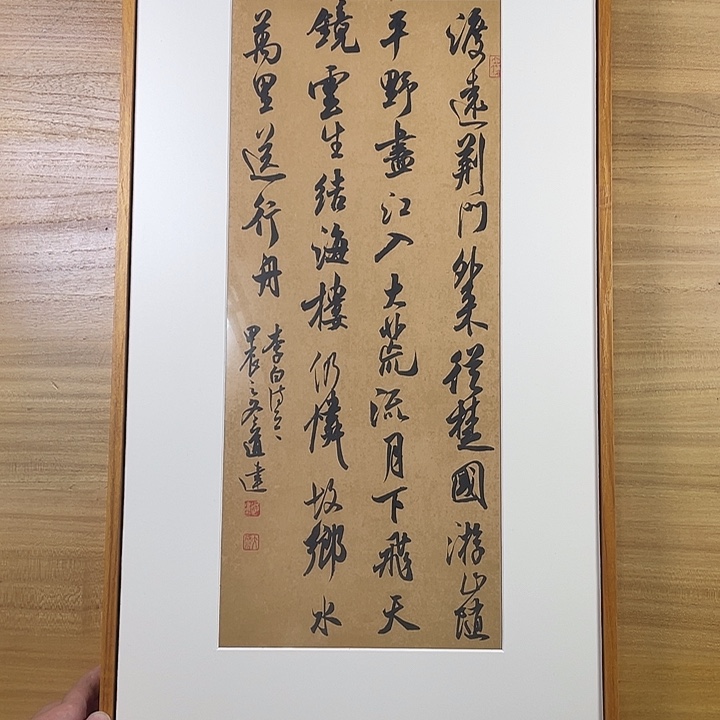 渡遠荊門外來從楚國游山隨
平野盡江入大荒流月下飛天
鏡雲生結海樓仍憐故鄉水
萬里送行舟
李白诗
甲辰之冬道達